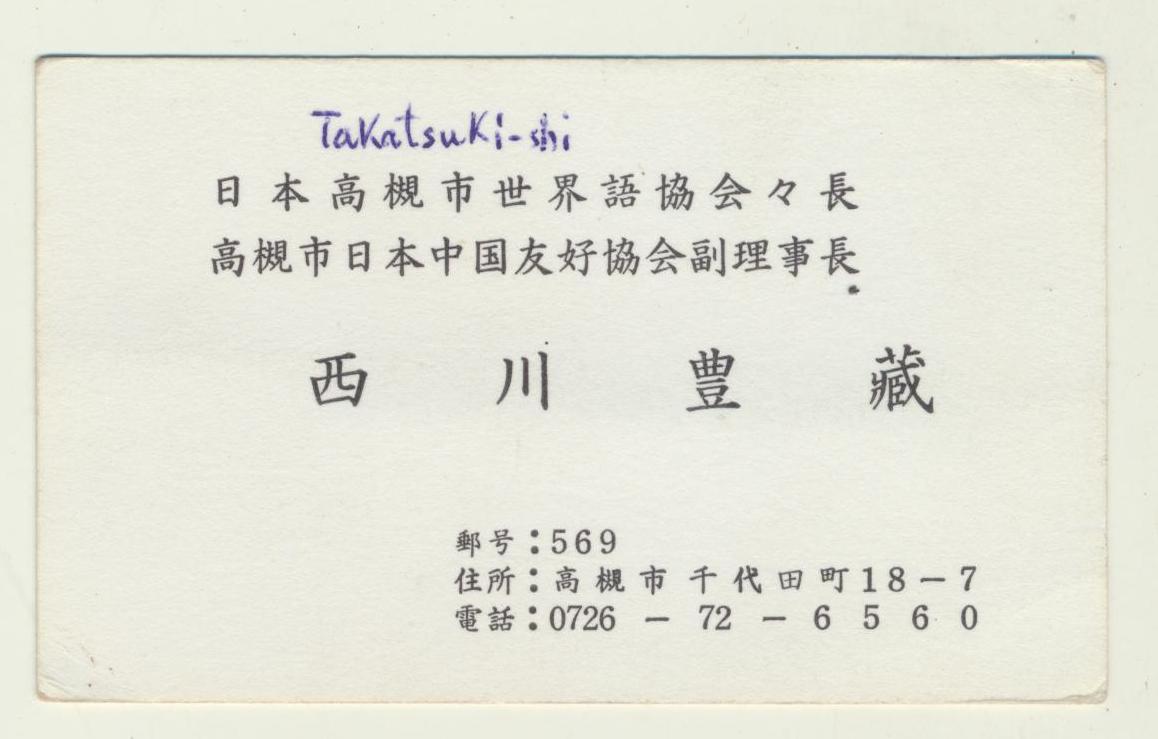 Takatsuki-shi
日本高槻市世界語協会々長
高槻市日本中国友好協会副理事長
西川豊藏
郵号：569
住所：高槻市千代田町18－7
電話：0726－72－6560